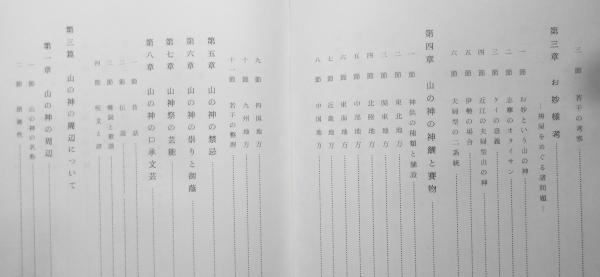 三節 若干の考察
第三章 お妙様考
―禊屋をめぐる諸問題―
一節 お妙という山の神
二節 志摩のオタイサン
三節 タイの意義
四節 近江の夫婦型山の神
五節 伊勢の場合
六節 夫婦型の二系統
第四章 山の神の神饌と賽物
一節 神供の種類と儀設
二節 東北地方
三節 関東地方
四節 北陸地方
五節 中部地方
六節 東海地方
七節 近畿地方
八節 中国地方
九節 四国地方
十節 九州地方
十一節 若干の整理
第五章 山の神の禁忌
第六章 山の神の祟りと御蔭
第七章 山神祭の芸能
第八章 山の神の口承文芸
一節 昔話
二節 伝説
三節
四節 呪文と諺
第三篇 山の神の周辺について
第一章 山の神の周辺
一節 山の神の名称
二節